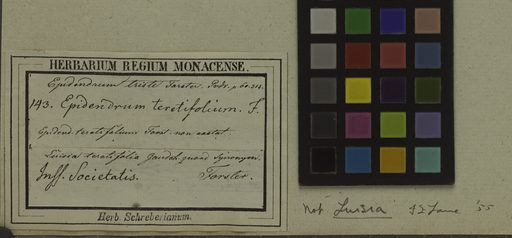 HERBARIUM REGIUM MONACENSE.
Epidendrum triste Forster. Prodr. p. 60. 314.
143. Epidendrum teretifolium. F.
Epidend. teretifolium Forst. non exstat.
Luisia teretifolia Gaudich. quoad synonym.
Inss. Societatis. Forster.
Herb. Schreberianum.
not Luisia '55